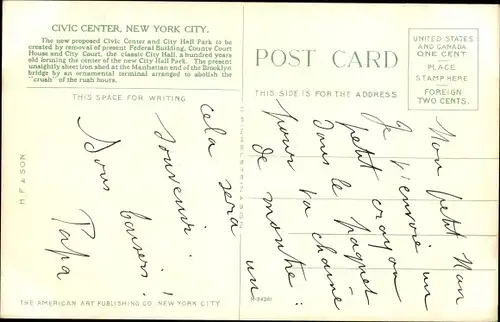 CIVIC CENTER, NEW YORK CITY.
The new proposed Civic Center and City Hall Park to be
created by removal of present Federal Building, County Court
House and City Court, the classic City Hall, a hundred years
old forming the center of the new City Hall Park. The present
unsightly sheet iron shed at the Manhattan end of the Brooklyn
bridge by an ornamental terminal arranged to abolish the
"crush" of the rush hours.
THIS SPACE FOR WRITING
POST CARD
THIS SIDE IS FOR THE ADDRESS
UNITED STATES
AND CANADA
ONE CENT
PLACE
STAMP HERE
FOREIGN
TWO CENTS.
H F & SON
Mon petit Nan
Je t'envoie un
petit crayon
dans le paquet
pour ta chaîne
de montre : un
cela sera
souvenir !
Doux baisers !
Papa
THE AMERICAN ART PUBLISHING CO. NEW YORK CITY